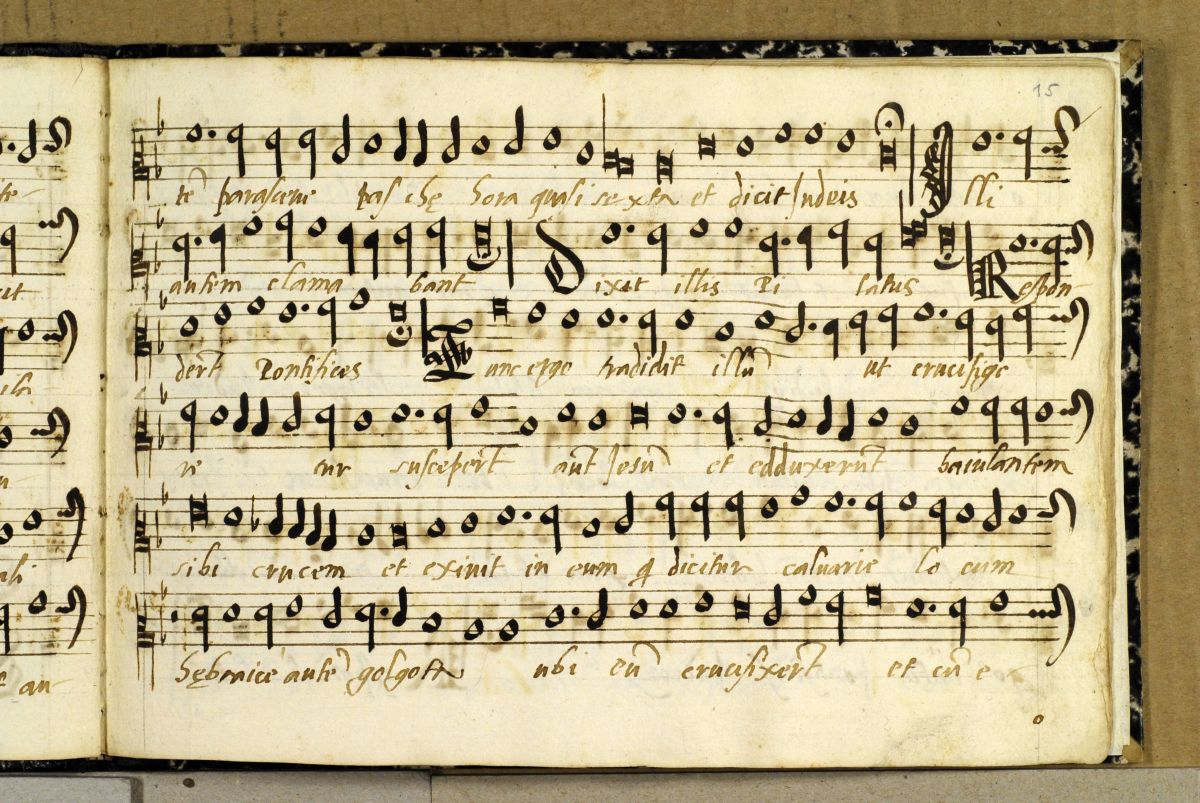 15
tē parasceue pas chę hora quasi sexta et dicit Judeis Illi
autem clama bant Dixit illis Pi latus Respon-
derūt Pontifices Tunc ergo tradidit illū ut crucifige
re tur susceperūt aut Jesū et edduxerūt baiulantem
sibi crucem et exiuit in eum q dicitur caluarie lo cum
hębraicè autē golgota ubi eū crucifixerūt et cū e-